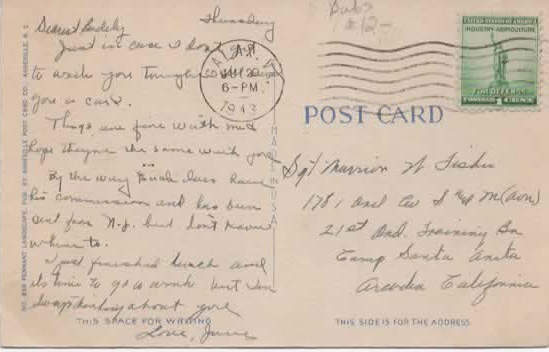 Dubs
$12-
Thursday
Dearest Buddy
Just in case I don't
to write you tonight
you a card.
Things are fine with me &
hope they're the same with you
By the way Buck does have
his commission and has been
sent from N.J. but don't know
where to.
Just finished lunch and
its time to go to work but I'm
always thinking about you
Love, June
THIS SPACE FOR WRITING
NO. 859 PENNANT LANDSCAPE, PUB. BY ASHEVILLE POST CARD CO. ASHEVILLE, N. C.
MADE IN U.S.A.
JAN 28
6-PM
1943
UNITED STATES OF AMERICA
INDUSTRY AGRICULTURE
FOR DEFENSE
POSTAGE 1 CENT
POST CARD
Sgt Marvion W Fisher
1781 Ord Co S & M (avn)
21st Ord. Training Bn
Camp Santa Anita
Arcadia California
THIS SIDE IS FOR THE ADDRESS